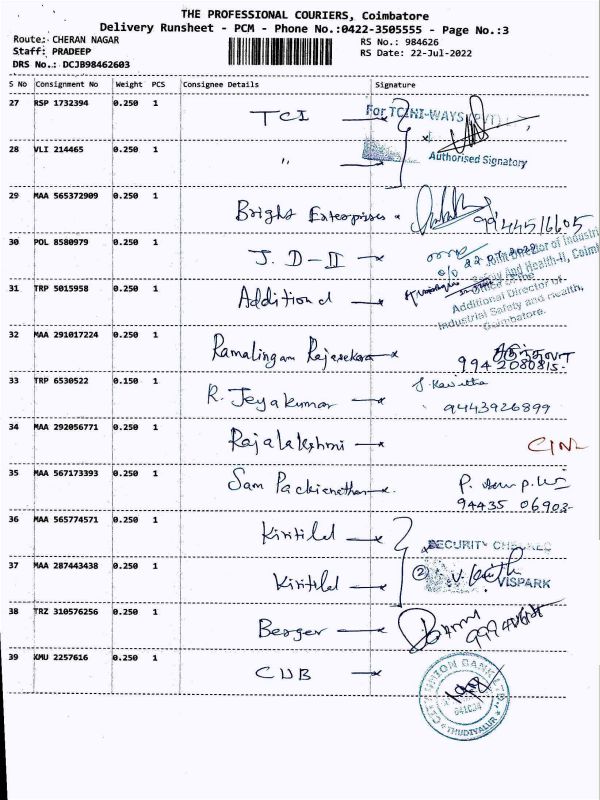 THE PROFESSIONAL COURIERS, Coimbatore
Delivery Runsheet - PCM - Phone No.:0422-3505555 - Page No.:3
Route: CHERAN NAGAR
RS No.: 984626
Staff: PRADEEP
RS Date: 22-Jul-2022
DRS No.: DCJB98462603
S No Consignment No Weight PCS Consignee Details Signature
27 RSP 1732394 0.250 1 TCI For TCI HI-WAYS (PVT)
28 VLI 214465 0.250 1 " Authorised Signatory
29 MAA 565372909 0.250 1 Bright Enterprises 9944516605
30 POL 8580979 0.250 1 J. D - II
Joint Director of Industri
Safety and Health-II, Coimb
31 TRP 5015958 0.250 1 Additional
Office of the
Additional Director of
Industrial Safety and Health,
Coimbatore.
32 MAA 291017224 0.250 1 Ramalingam Rajasekara
9942080815
33 TRP 6530522 0.150 1 R. Jeyakumar J. Kavitha
9443926899
34 MAA 292056771 0.250 1 Rajalakshmi
35 MAA 567173393 0.250 1 Sam Packianathan
94435 06903
36 MAA 565774571 0.250 1 Kiritilal SECURITY CHECKED
37 MAA 287443438 0.250 1 Kiritilal 2 VISPARK
38 TRZ 310576256 0.250 1 Berger
39 KMU 2257616 0.250 1 CUB
CITY UNION BANK LTD
THUDIYALUR